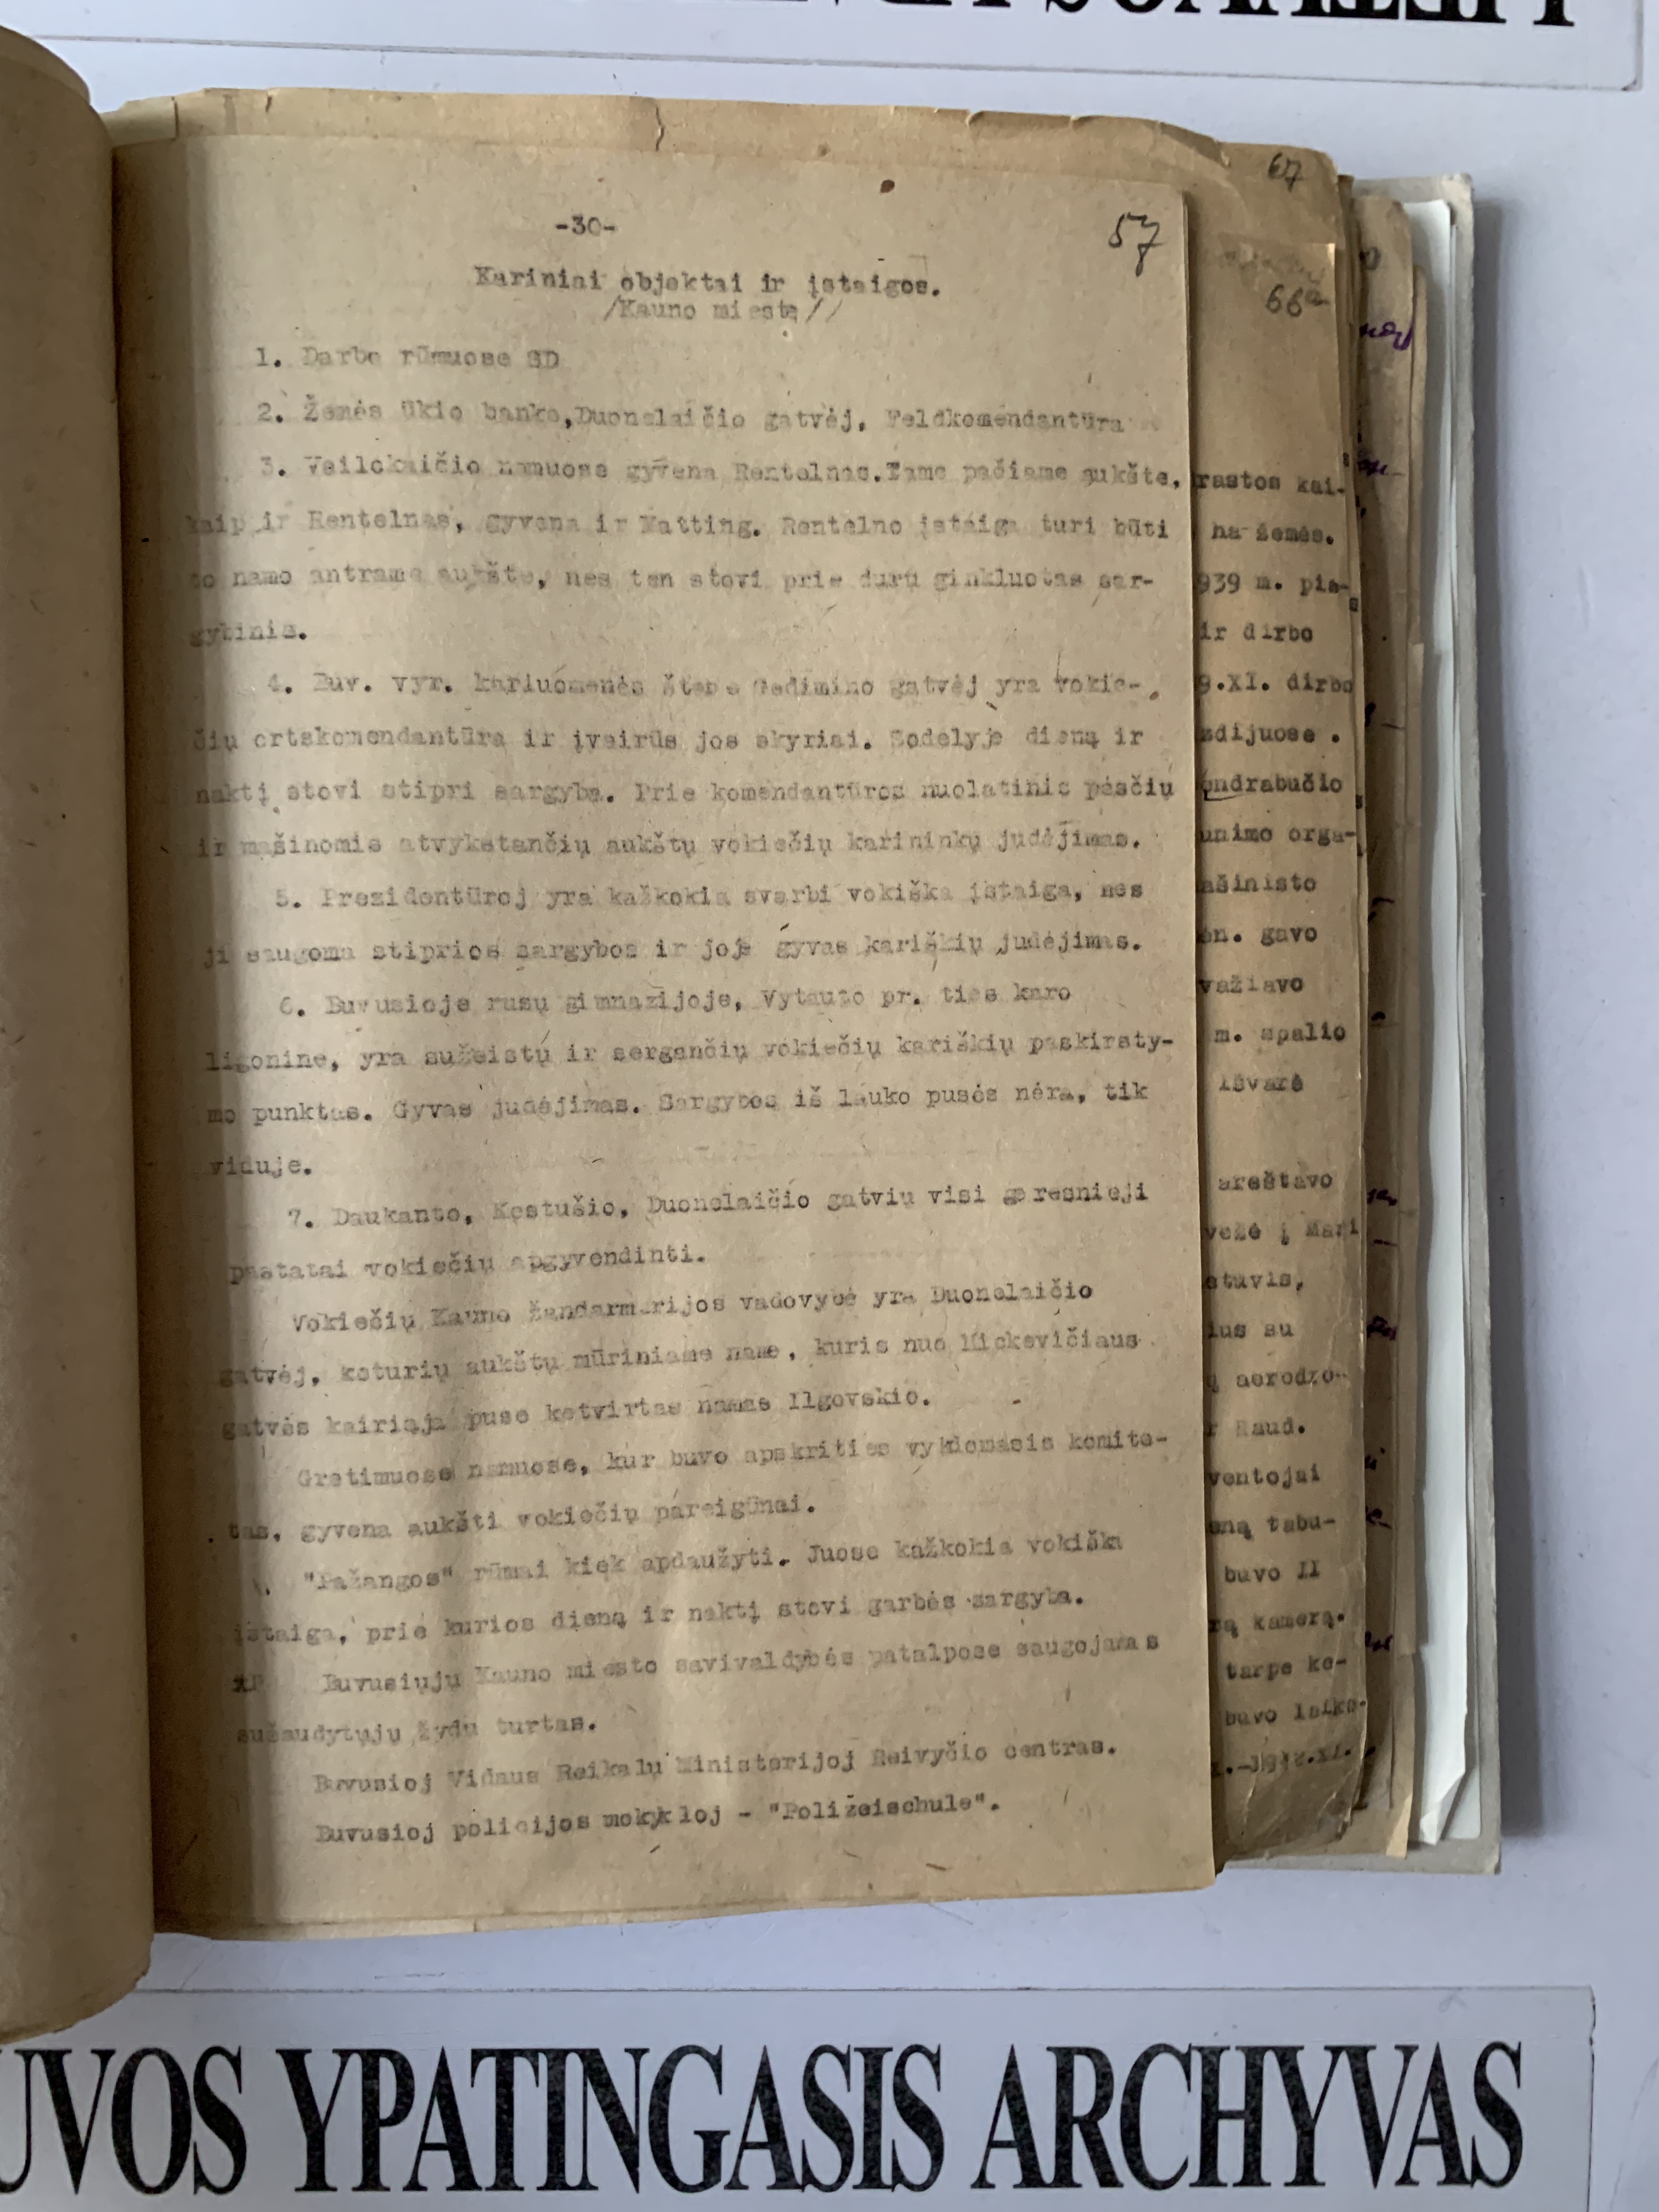 -30-
57
Kariniai objektai ir įstaigos.
/Kauno mieste//
1. Darbo rūmuose SD
2. Žemės ūkio banke,Duonelaičio gatvėj, Feldkomendantūra
3. Vailokaičio namuose gyvena Rentelnas.Tame pačiame aukšte,
kaip ir Rentelnas, gyvena ir Natting. Rentelno įstaiga turi būti
to namo antrame aukšte, nes ten stovi prie durų ginkluotas sar-
gybinis.
4. Buv. vyr. kariuomenės štabe Gedimino gatvėj yra vokie-
čių ortskomendantūra ir įvairūs jos skyriai. Sodelyje dieną ir
naktį stovi stipri sargyba. Prie komendantūros nuolatinis pėsčių
ir mašinomis atvykstančių aukštų vokiečių karininkų judėjimas.
5. Prezidentūroj yra kažkokia svarbi vokiška įstaiga, nes
ji saugoma stiprios sargybos ir joje gyvas kariškių judėjimas.
6. Buvusioje rusų gimnazijoje, Vytauto pr. ties karo
ligonine, yra sužeistų ir sergančių vokiečių kariškių paskirsty-
mo punktas. Gyvas judėjimas. Sargybos iš lauko pusės nėra, tik
viduje.
7. Daukanto, Kęstušio, Duonelaičio gatvių visi geresnieji
pastatai vokiečių apgyvendinti.
Vokiečių Kauno žandarmerijos vadovybė yra Duonelaičio
gatvėj, keturių aukštų mūriniame name, kuris nuo Mickevičiaus
gatvės kairiąja puse ketvirtas namas Ilgovskio.
Gretimuose namuose, kur buvo apskrities vykdomasis komite-
tas, gyvena aukšti vokiečių pareigūnai.
"Pažangos" rūmai kiek apdaužyti. Juose kažkokia vokiška
įstaiga, prie kurios dieną ir naktį stovi garbės sargyba.
Buvusiųjų Kauno miesto savivaldybės patalpose saugojamas
sušaudytųjų žydų turtas.
Buvusioj Vidaus Reikalų Ministerijoj Reivyčio centras.
Buvusioj policijos mokykloj - "Poližeischule".
67
66a
rastos kai-
ha žemės.
939 m. pia-
ir dirbo
9.XI. dirbo
zdijuose .
endrabučio
unimo orga-
ašinisto
en. gavo
važiavo
m. spalio
išvarė
areštavo
vežė į Mari
etuvis,
ius su
ų aerodro-
r Raud.
ventojai
eną tabu-
buvo II
rą kamerą.
tarpe ke-
buvo laiko-
UVOS YPATINGASIS ARCHYVAS